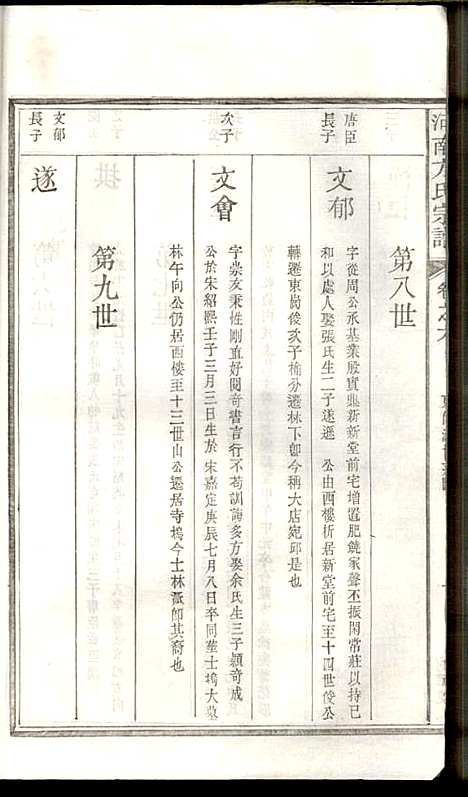 河南方氏宗譜
卷之
第八世
唐臣
長子
文郁
字從周公承基業殷實鼎新新堂前宅增置肥饒家聲丕振閎常莊以持已
和以處人娶張氏生二子遂遜 公由西樓析居新堂前宅至十四世俊公
轉遷東崗後次子榆分遷林下卽今稱大店宛邱是也
次子
文會
字崇友秉性剛直好閱奇書言行不苟訓誨多方娶余氏生三子穎奇成
公於宋紹熙壬子三月三日生於宋嘉定庚辰七月八日卒同塟士塢大墓
林午向公仍居西樓至十三世山公遷居寺塢今士林派卽其裔也
第九世
文郁
長子
遂